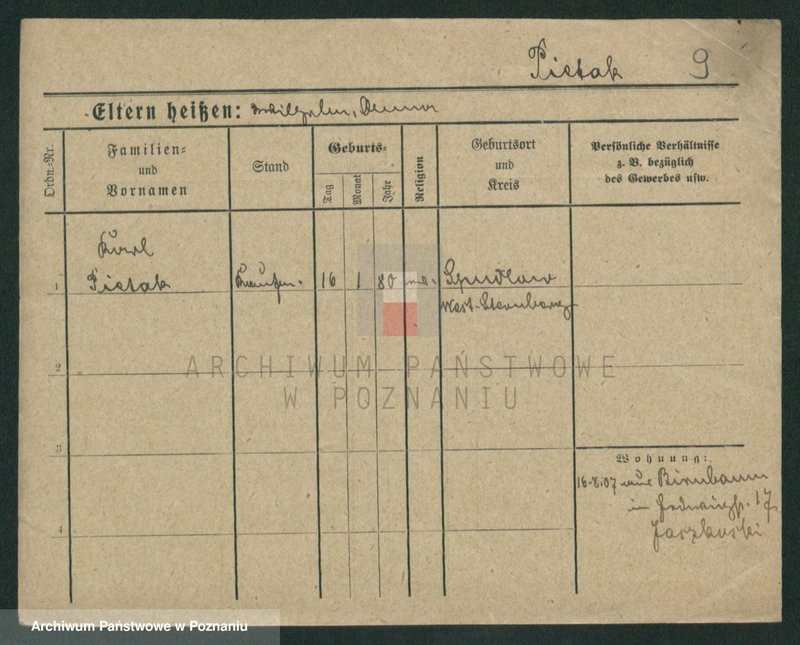 Pietak 9
Eltern heißen: Wilhelm, Anna
Ordn.-Nr.
Familien-
und
Vornamen
Stand
Geburts-
Tag
Monat
Jahr
Religion
Geburtsort
und
Kreis
Persönliche Verhältnisse
z. B. bezüglich
des Gewerbes usw.
Karl
1 Pietak 16 1 80 Spudlow
West-Sternberg
2
3
4
ARCHIWUM PAŃSTWOWE
W POZNANIU
Wohnung:
16.8.07 aus Birnbaum
17
Jaszkowski
Archiwum Państwowe w Poznaniu